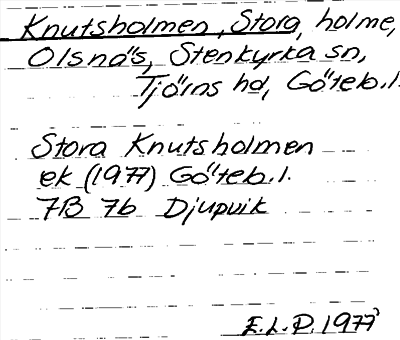 Knutsholmen, Stora, holme,
Olsnäs, Stenkyrka sn,
Tjörns hd, Göteb.l.
Stora Knutsholmen
ek (1977) Göteb.l.
7B 7b Djupvik
E.L.P. 1977